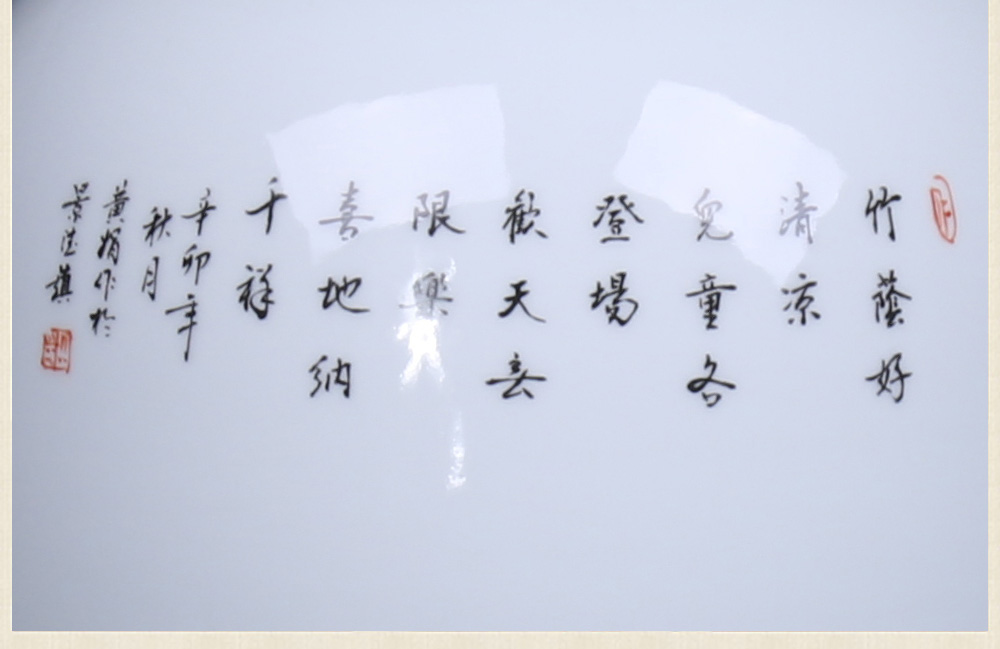 竹蔭好
清凉
兒童各
登場
歡天無
限樂
喜地納
千祥
辛卯年
秋月
黃娟作於
景德鎮